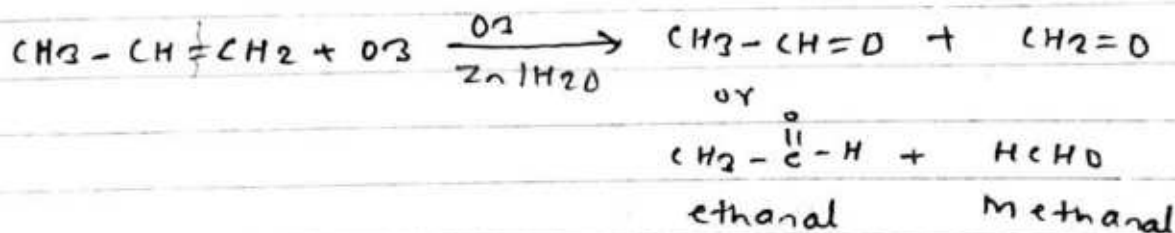 CH3 - CH = CH2 + O3 O3 / Zn/H2O → CH3 - CH = O + CH2 = O
or
O
||
CH3 - C - H + HCHO
ethanal Methanal